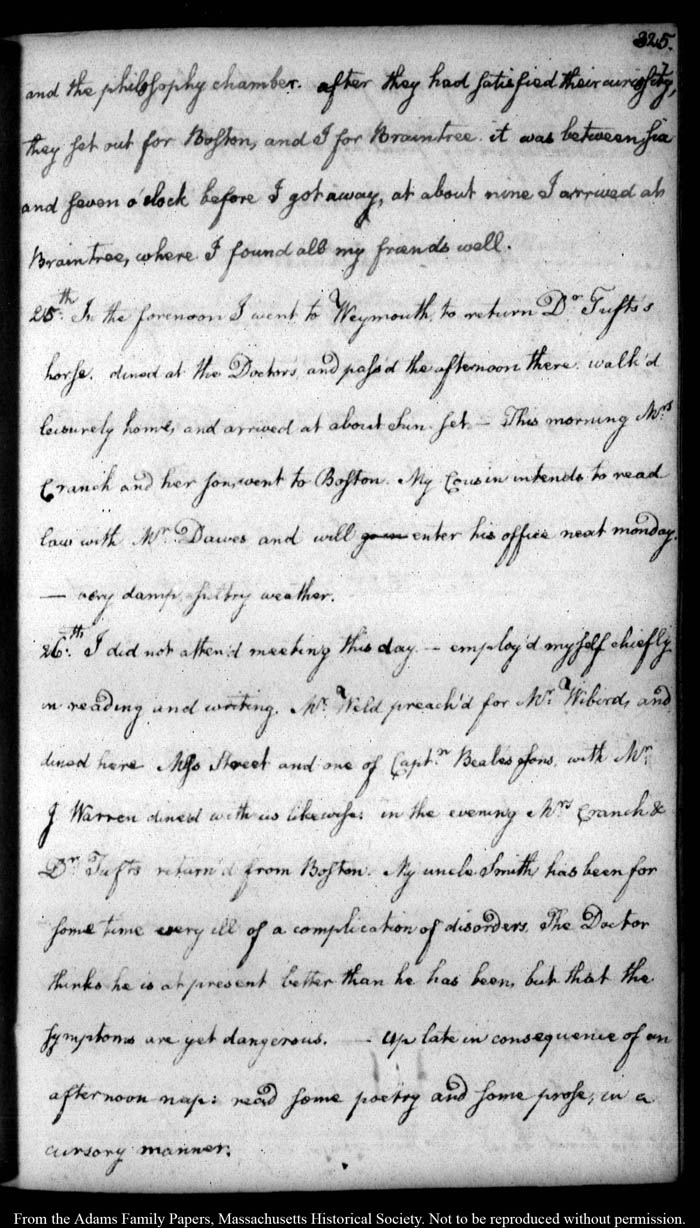 325.
and the philosophy chamber. after they had satisfied their curiosity,
they set out for Boston, and I for Braintree. it was between six
and seven o'clock before I got away, at about nine I arrived at
Braintree, where I found all my friends well.
25th. In the forenoon I went to Weymouth, to return Dr. Tufts's
horse. dined at the Doctor's, and pass'd the afternoon there. walk'd
leisurely home, and arrived at about Sun set. — This morning Mrs.
Cranch and her son, went to Boston. My Cousin intends to read
law with Mr. Dawes and will enter his office next monday.
— very damp, sultry weather.
26th. I did not attend meeting this day. — employ'd myself chiefly
in reading and writing. Mr. Weld preach'd for Mr. Wibird, and
dined here. Miss Street and one of Captn. Beale's sons, with Mr.
J Warren dined with us likewise: in the evening Mrs. Cranch &
Dr. Tufts return'd from Boston. My uncle Smith has been for
some time very ill of a complication of disorders. The Doctor
thinks he is at present better than he has been, but that the
symptoms are yet dangerous. — Up late in consequence of an
afternoon nap: read some poetry and some prose, in a
cursory manner.
From the Adams Family Papers, Massachusetts Historical Society. Not to be reproduced without permission